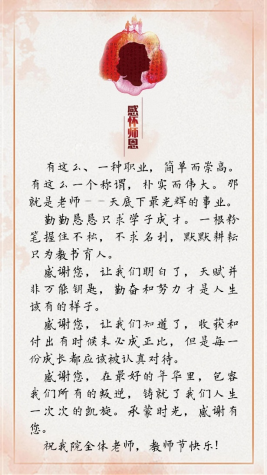 感怀师恩
有这么、一种职业，简单而崇高。
有这么一个称谓，朴实而伟大。那
就是老师--天底下最光辉的事业。
勤勤恳恳只求学子成才。一根粉
笔握住不松，不求名利，默默耕耘
只为教书育人。
感谢您，让我们明白了，天赋并
非万能钥匙，勤奋和努力才是人生
该有的样子。
感谢您，让我们知道了，收获和
付出有时候未必成正比，但是每一
份成长都应该被认真对待。
感谢您，在最好的年华里，包容
我们所有的叛逆，铸就了我们人生
一次次的凯旋。承蒙时光，感谢有
您。
祝我院全体老师，教师节快乐！